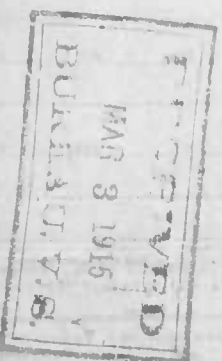 RECEIVED
MAR 3 1915
BUREAU V.S.